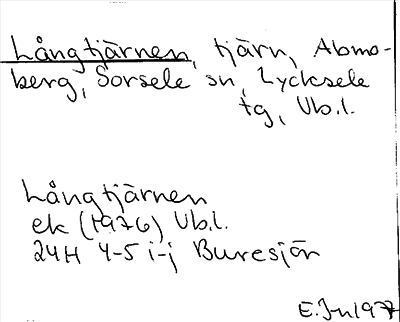 Långtjärnen, tjärn, Abmo-
berg, Sorsele sn, Lycksele
tg, Vb.l.
Långtjärnen
ek (1976) Vb.l.
24H 4-5 i-j Buresjön
E.J-n 1977